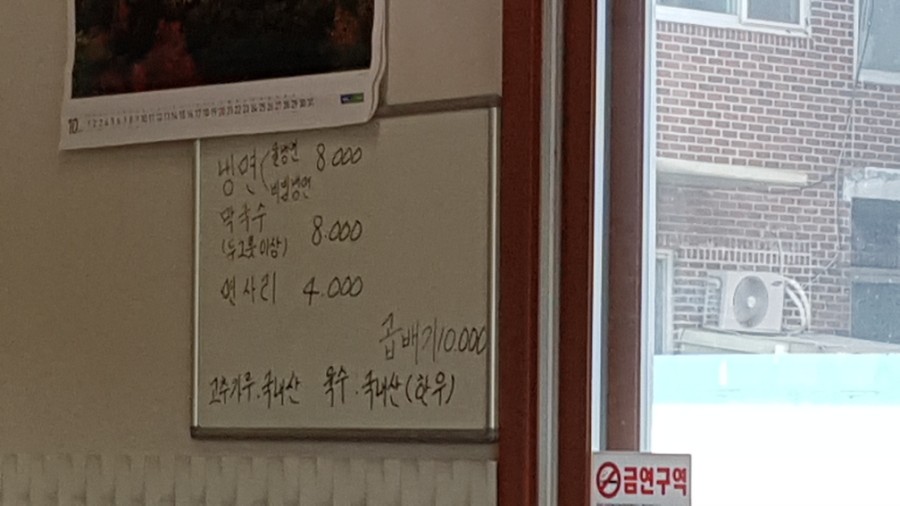 10
냉면(물냉면 8.000
비빔냉면
막국수
(두그릇이상) 8.000
면사리 4.000
곱배기10.000
고추가루.국내산 육수.국내산(한우)
금연구역